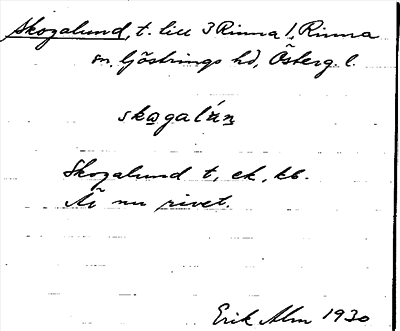 Skogalund, t. till 3 Rinna l, Rinna
sn, Göstrings hd, Österg. l.
skogalún
Skogalund t, ek, kb.
Är nu rivet.
Erik Alm 1930